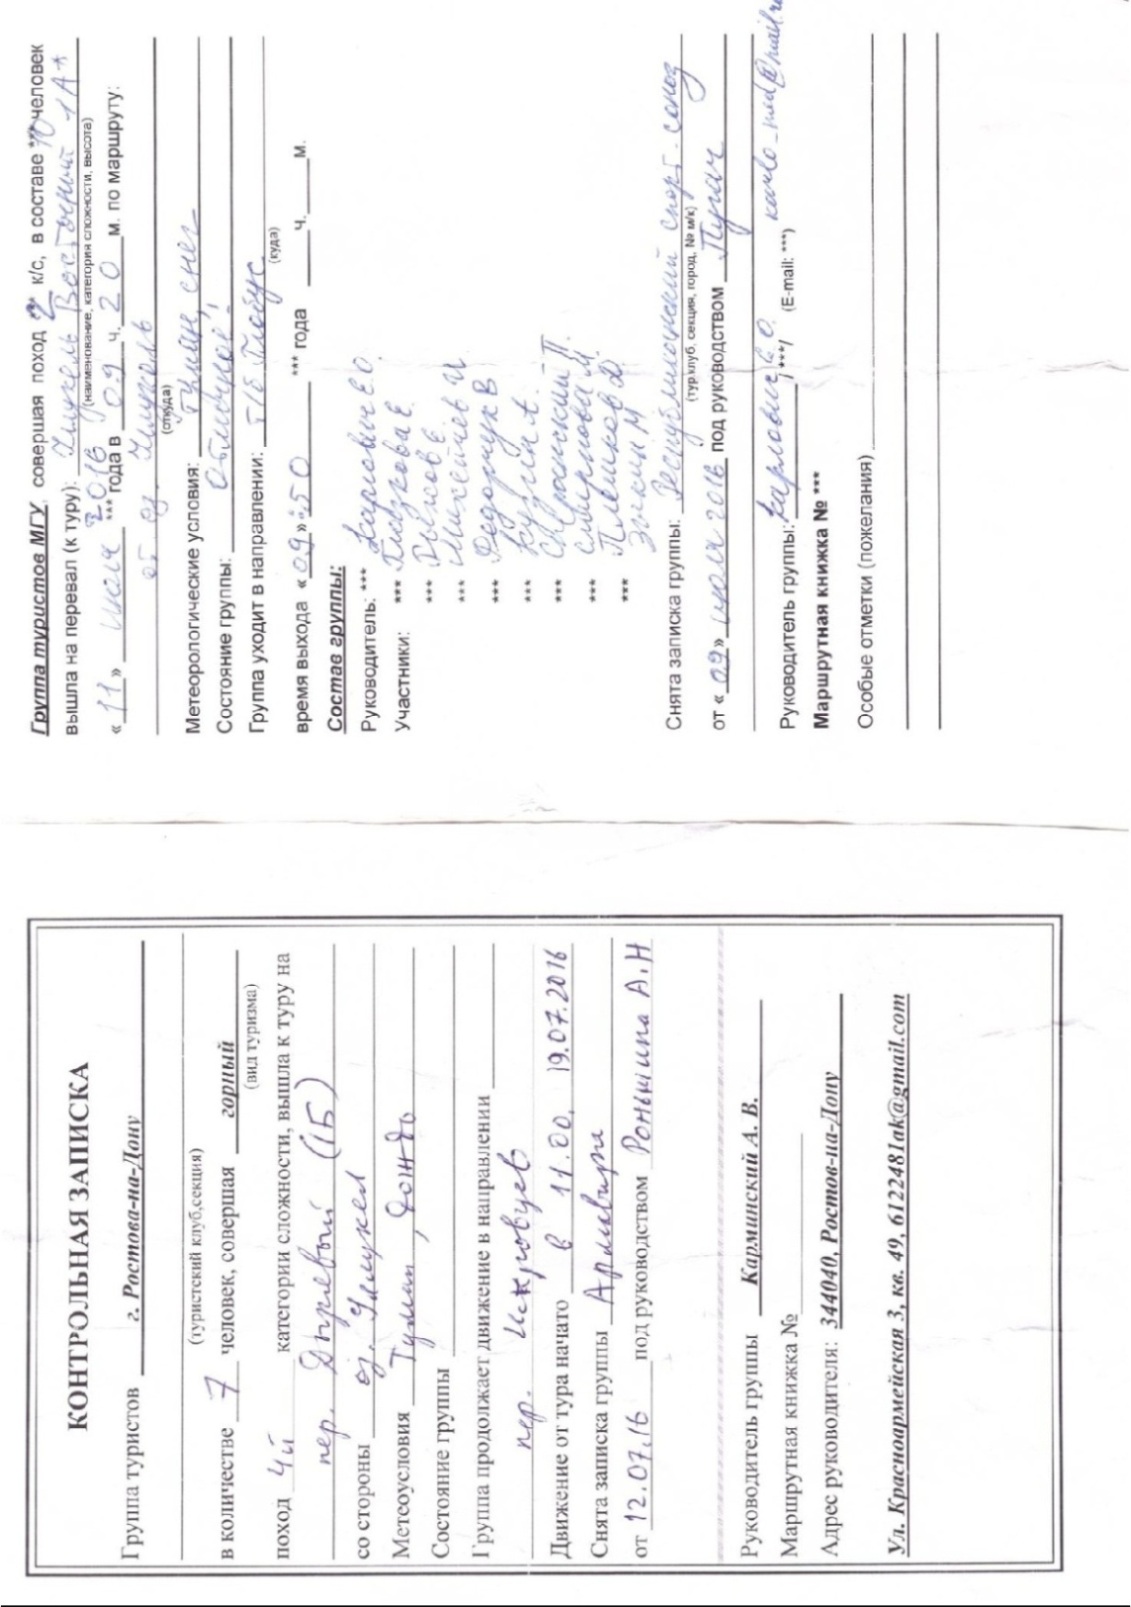 Группа туристов МГУ, совершая поход 2 к/с, в составе **10 человек
вышла на перевал (к туру): Восточный 1А*
(наименование, категория сложности, высота)
«11» июля 2016 *** года в 09 ч. 20 м. по маршруту:
от оз.
(откуда)
Метеорологические условия: туман, снег
Состояние группы: отличное!
Группа уходит в направлении:
(куда)
время выхода «09»:50 *** года ч. м.
Состав группы:
Руководитель: *** Карлович Е.О.
Участники: *** Глазкова Е.
*** Рыжов Е.
***
*** Федорчук В
*** Кузин А.
***
*** Смирнова М.
*** Плешков Д
Зыкин М
Снята записка группы: Республиканский спорт-союз
(тур.клуб, секция, город, № м/к)
от «09» июля 2016 под руководством Пугач
Руководитель группы: Карлович Е.О. /***/ (E-mail: ***)
Маршрутная книжка № ***
Особые отметки (пожелания)
КОНТРОЛЬНАЯ ЗАПИСКА
Группа туристов г. Ростова-на-Дону
(туристский клуб,секция)
в количестве 7 человек, совершая горный
(вид туризма)
поход 4й категории сложности, вышла к туру на
пер. Дырявый (1Б)
со стороны оз.
Метеоусловия Туман, дождь
Состояние группы
Группа продолжает движение в направлении
пер. Искровцев
Движение от тура начато в 11.00, 19.07.2016
Снята записка группы Армавира
от 12.07.16 под руководством Ронькина А.Н
Руководитель группы Карминский А. В.
Маршрутная книжка №
Адрес руководителя: 344040, Ростов-на-Дону
Ул. Красноармейская 3, кв. 49, 6122481ak@gmail.com